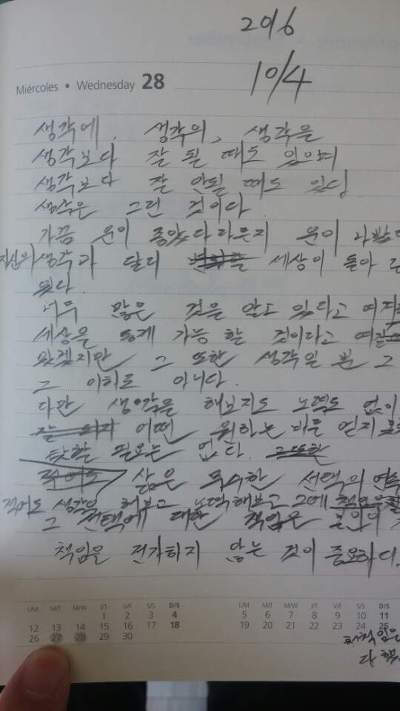 2016
Miércoles • Wednesday 28
10/4
생각에, 생각의, 생각을
생각보다 잘 될 때도 있으며
생각보다 잘 안될 때도 있다
생각은 그런 것이다
가끔 운이 좋았다라든지 운이 나빴다
자신의 생각과 달리 세상이 돌아
왔다.
너무 많은 것을 알고 있다고 여겨
세상을 쉽게 가능 할 것이라고 여길
왔겠지만 그 또한 생각일 뿐 그
그 이하로 아니다.
다만 생각을 해보지도 노력도 없이
어떤 원하는 바를 얻지 못
탓할 필요는 없다.
삶은 무수한 선택의 연속
적어도 생각은 해보고 노력해보고 그에 책임을
그 선택에 대한 책임은 본인의
책임을 전가하지 않는 것이 중요하다.
1 2 3 4
12 13 14 15 16 17 18
26 27 28 29 30
5 6 7 8 9 10 11
12 13 14 15 16 17 18
19 20 21 22 23 24 25